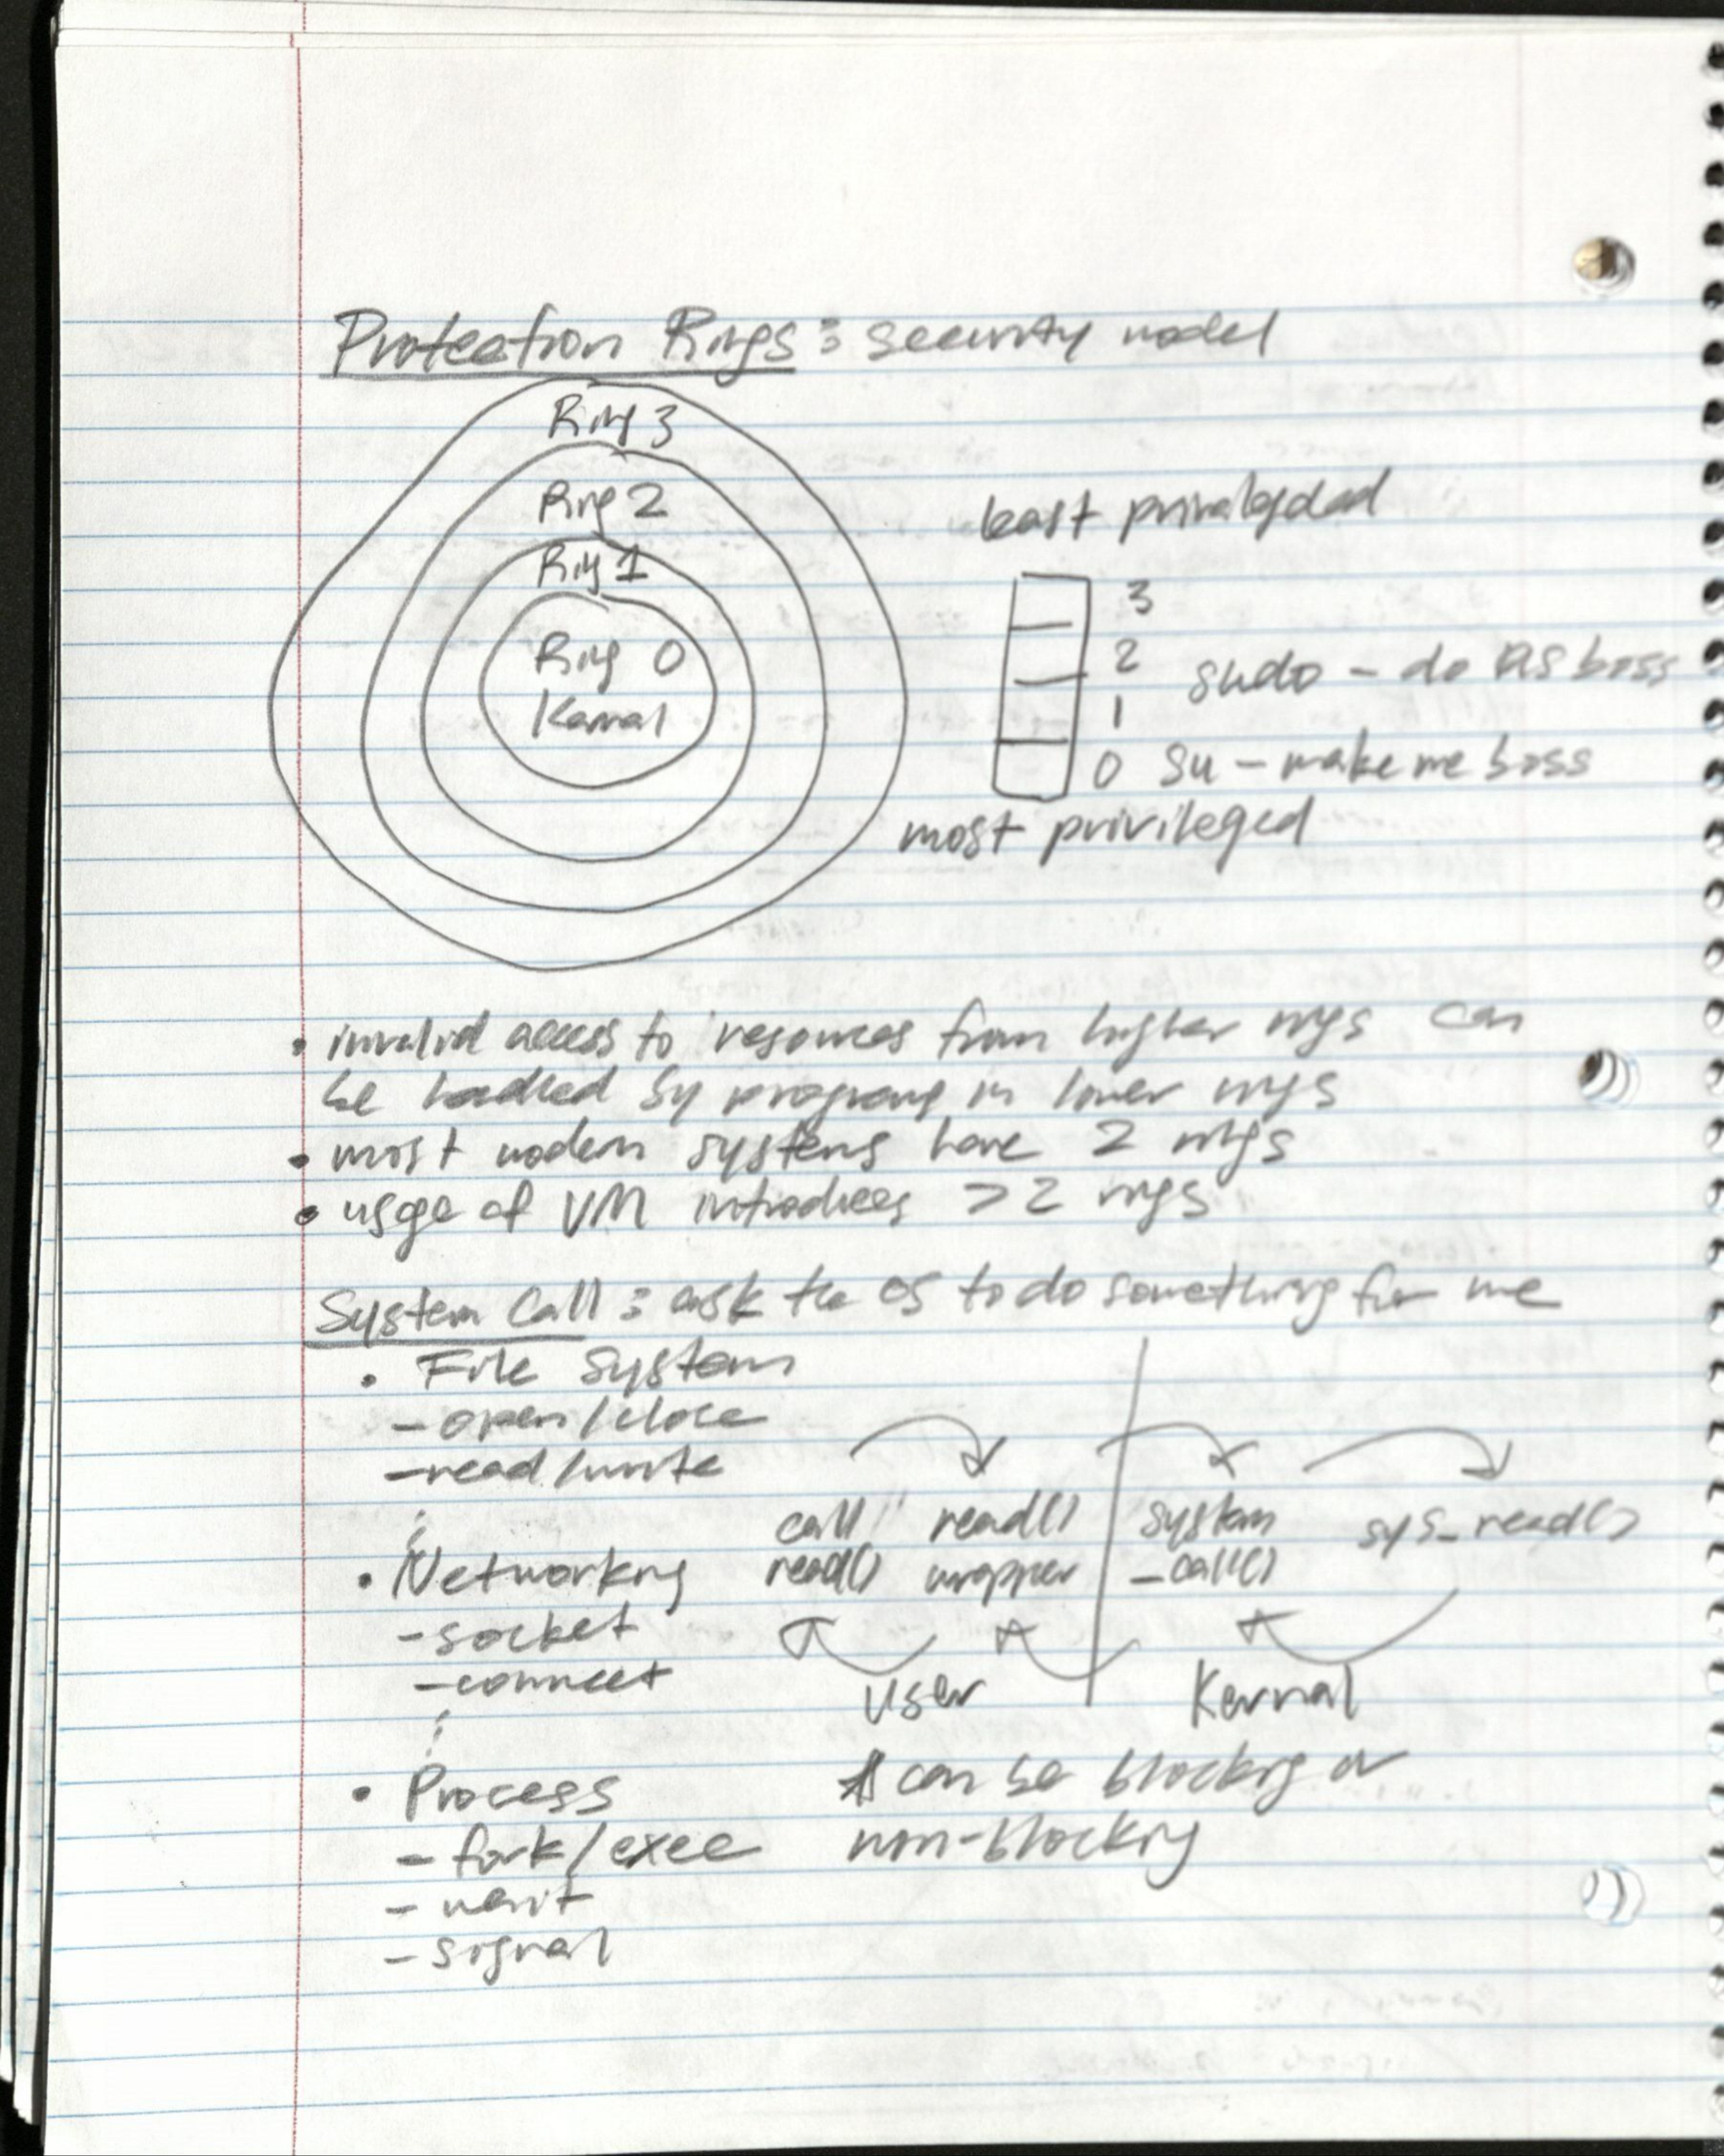 Protection Rings : security model
Ring 3
Ring 2
Ring 1
Ring 0
Kernal
least privaledged
3
2 sudo - do as boss
1
0 su - make me boss
most privileged
• invalid access to resources from higher rings can
be handled by programs in lower rings
• most modern systems have 2 rings
• usage of VM introduces >2 rings
System Call : ask the OS to do something for me
• File System
- open/close
- read/write
⋮
call read() system sys_read()
read() wrapper _call()
• Networking
- socket
- connect
⋮
User Kernal
• Process
- fork/exec
- wait
- signal
can be blocking or
non-blocking